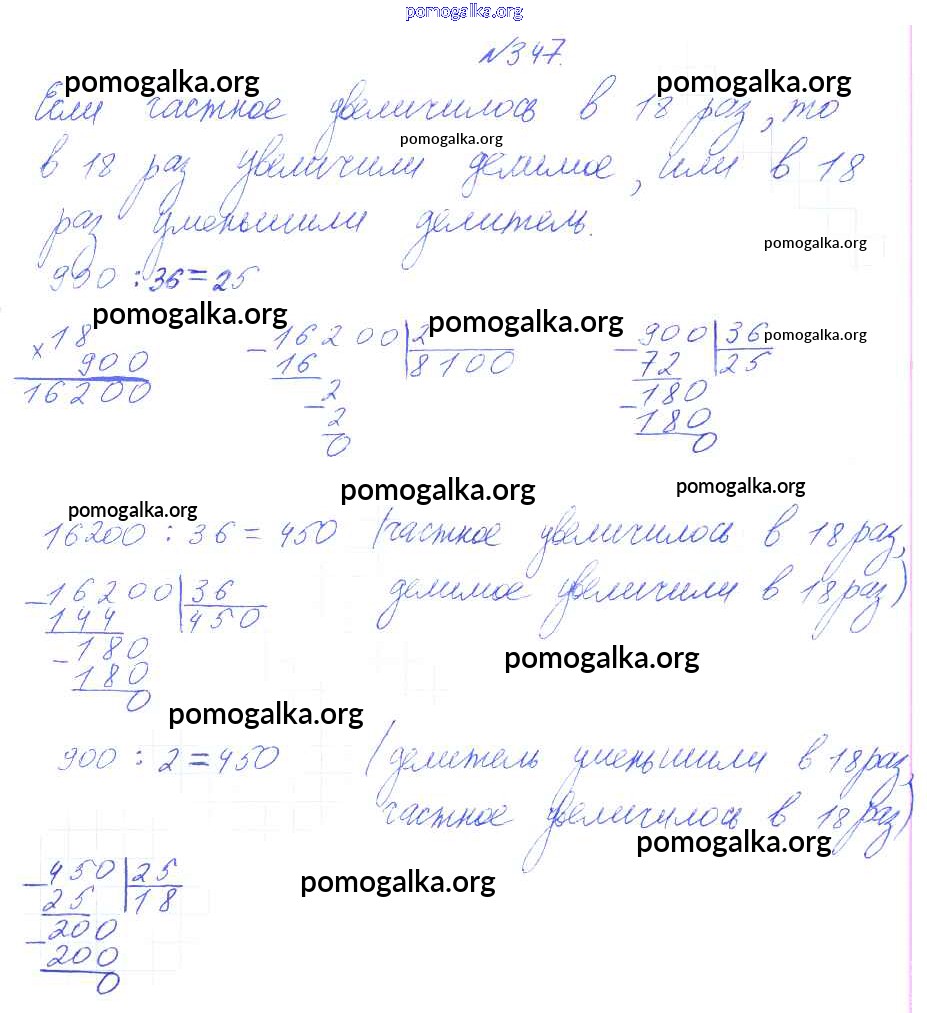 pomogalka.org
№347.
pomogalka.org pomogalka.org
Если частное увеличилось в 18 раз, то
pomogalka.org
в 18 раз увеличили делимое, или в 18
раз уменьшили делитель.
pomogalka.org
900 : 36 = 25
pomogalka.org pomogalka.org pomogalka.org
× 18
900
16200
− 16200 | 2
16 | 8100
− 2
2
0
− 900 | 36
72 | 25
− 180
180
0
pomogalka.org pomogalka.org
pomogalka.org
16200 : 36 = 450 (частное увеличилось в 18 раз,
делимое увеличили в 18 раз)
− 16200 | 36
144 | 450
− 180
180
0
pomogalka.org
pomogalka.org
900 : 2 = 450 (делитель уменьшили в 18 раз,
частное увеличилось в 18 раз)
pomogalka.org
− 450 | 25
25 | 18
− 200
200
0
pomogalka.org